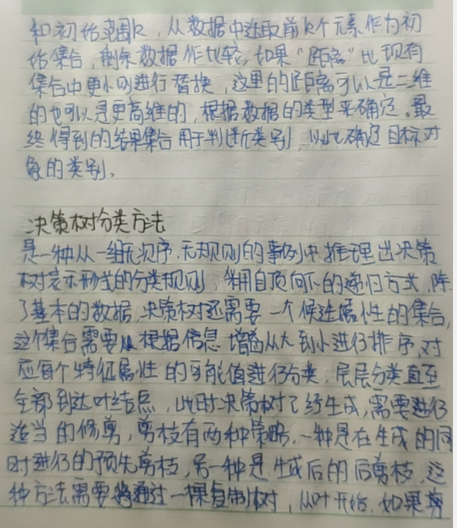 和初始范围k，从数据中选取前k个元素作为初
始集合，剩余数据作比较，如果“距离”比现有
集合中更小则进行替换，这里的距离可以是二维
的也可以是更高维的，根据数据的类型来确定。最
终得到的结果集合用于判断类别，以此确定目标对
象的类别。
决策树分类方法
是一种从一组无次序、无规则的事例中推理出决策
树表示形式的分类规则，利用自顶向下的递归方式，除
了基本的数据，决策树还需要一个候选属性的集合，
这个集合需要从根据信息增益从大到小进行排序，对
应每个特征属性的可能值进行分类，层层分类直至
全部到达叶结点，此时决策树已经生成，需要进行
适当的修剪，剪枝有两种策略，一种是在生成的同
时进行的预先剪枝，另一种是生成后的后剪枝，这
种方法需要将通过一棵复制树，从叶开始，如果剪